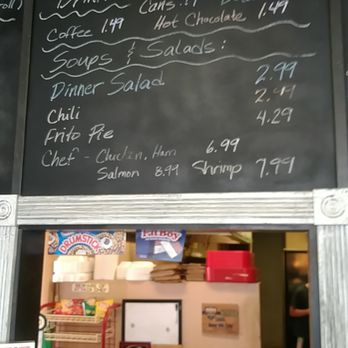 Coffee 1.49 Hot Chocolate 1.49
Soups & Salads:
Dinner Salad 2.99
Chili 2.99
Frito Pie 4.29
Chef - Chicken, Ham 6.99
Salmon 8.99 Shrimp 7.99
DRUMSTICK
FAT BOY